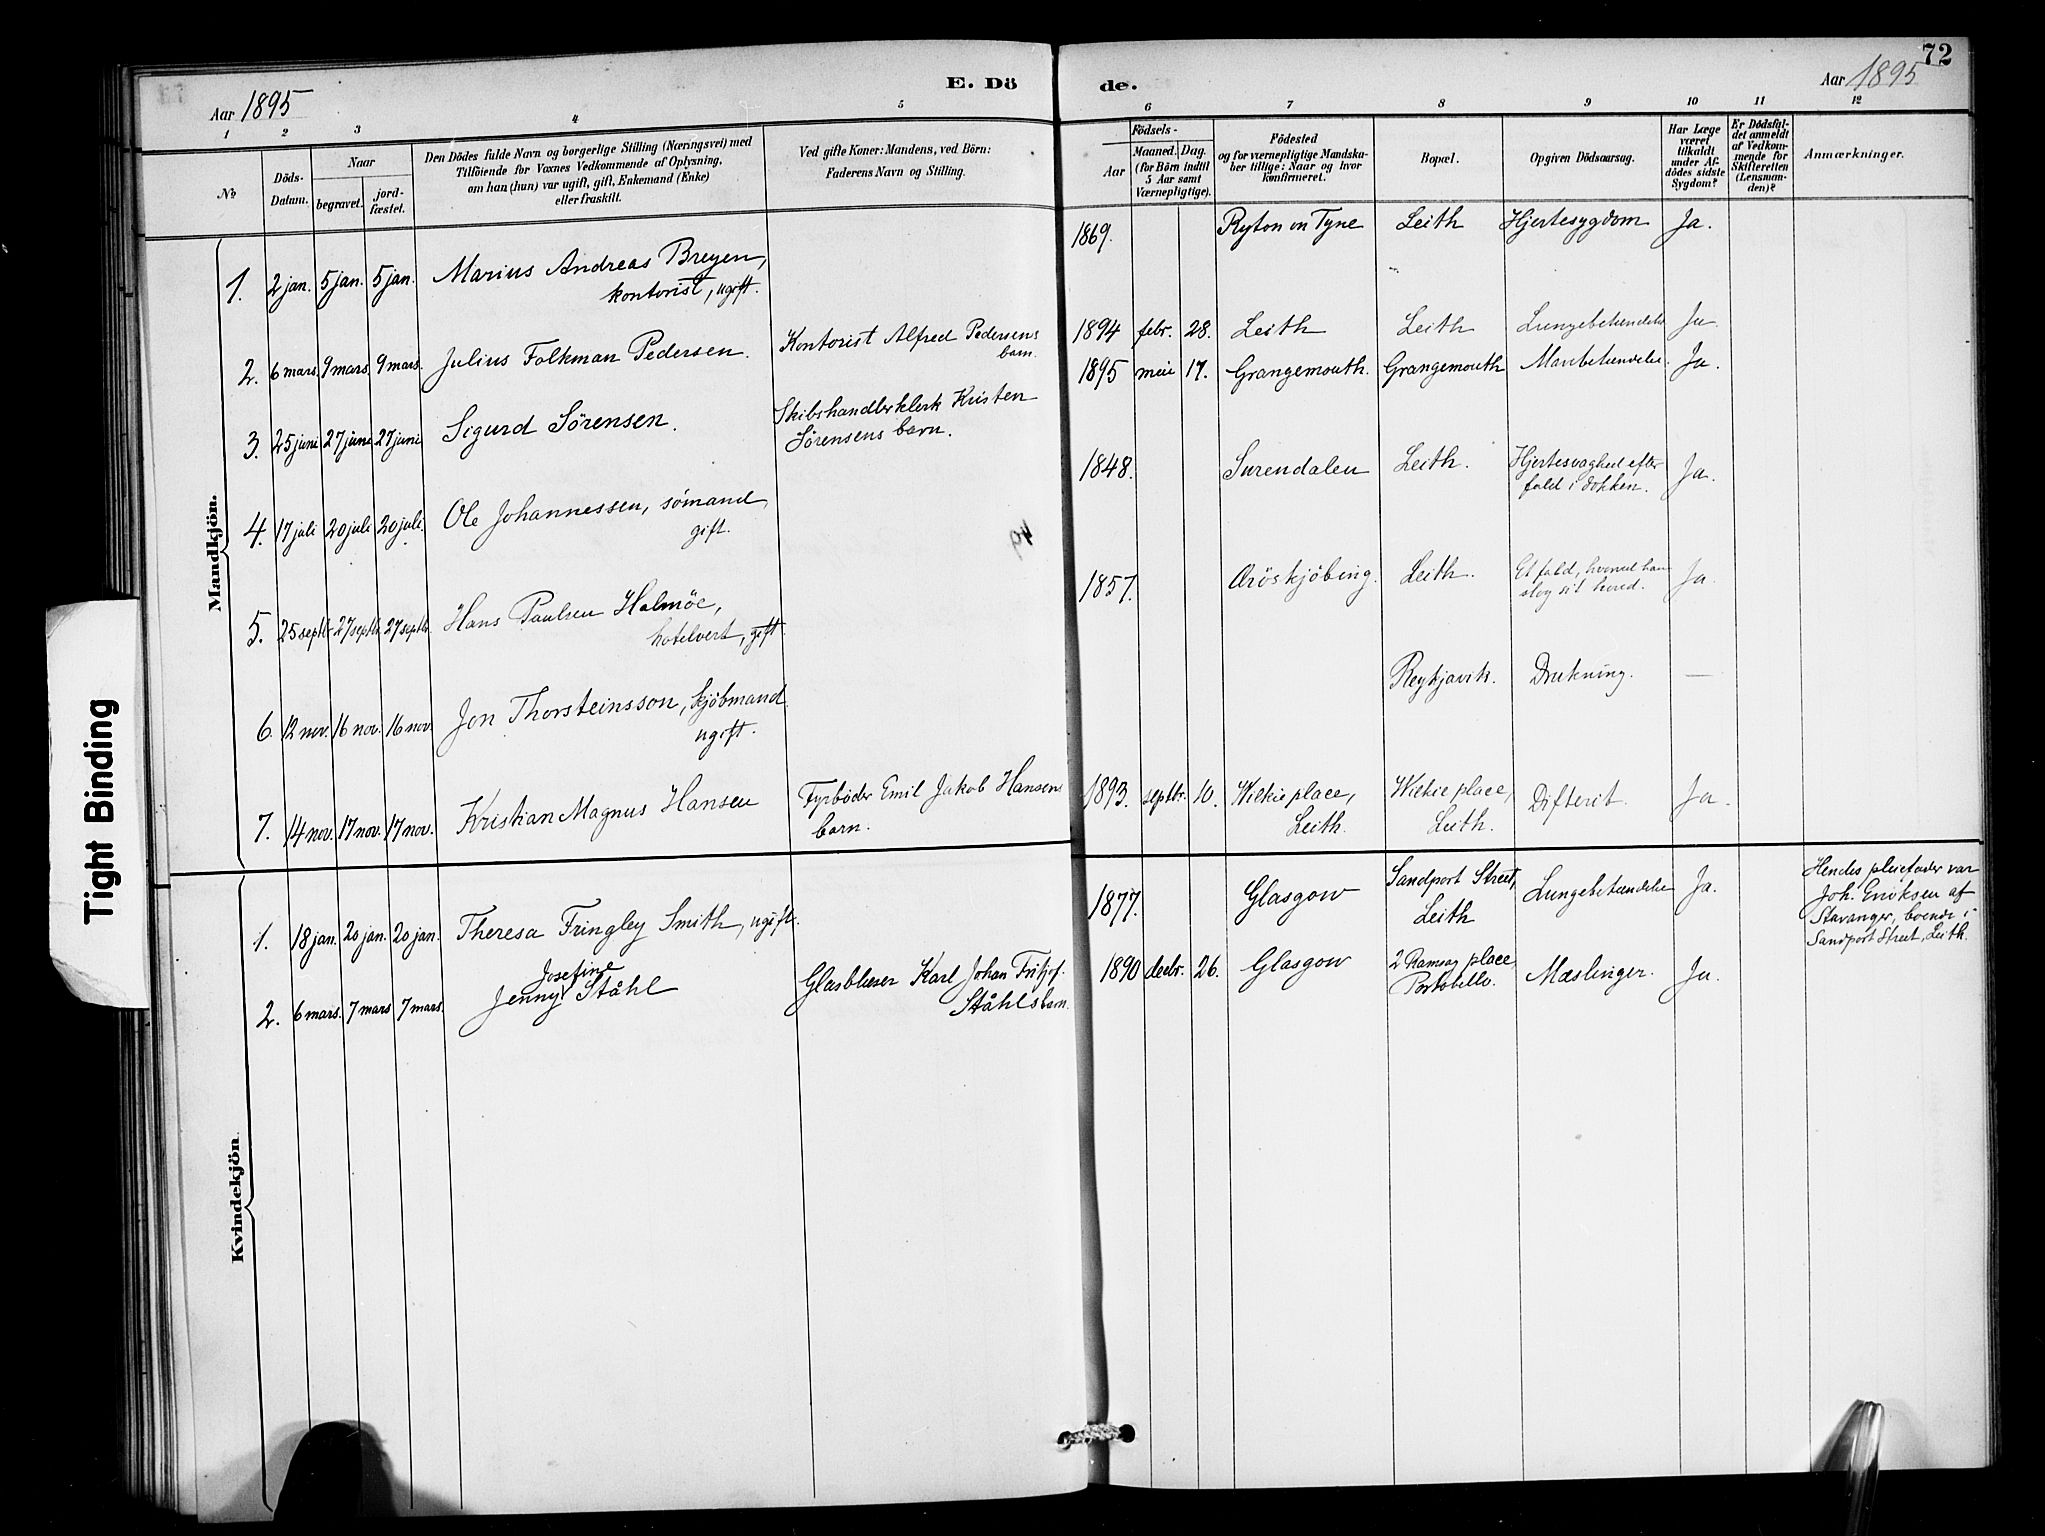 72
E. Dö
de.
Aar 1895
Aar 1895
1
2
3
4
5
6
7
8
9
10
11
12
No
Döds-
Datum.
Naar
begravet.
jord-
fæstet.
Den Dödes fulde Navn og borgerlige Stilling (Næringsvei) med
Tilföiende for Voxnes Vedkommende af Oplysning,
om han (hun) var ugift, gift, Enkemand (Enke)
eller fraskilt.
Ved gifte Koner: Mandens, ved Börn:
Faderens Navn og Stilling.
Födsels-
Aar
Maaned. Dag.
(for Börn indtil
5 Aar samt
Værnepligtige).
Födested
og for værnepligtige Mandska-
ber tillige: Naar og hvor
konfirmeret.
Bopæl.
Opgiven Dödsaarsag.
Har Læge
været
tilkaldt
under Af-
dödes sidste
Sygdom?
Er Dödsfal-
det anmeldt
af Vedkom-
mende for
Skifteretten
(Lensman-
den)?
Anmærkninger.
Mandkjön.
1. 2 jan. 5 jan. 5 jan. Marius Andreas Breyen,
kontorist, ugift.
1869. Ryton on Tyne Leith Hjertesygdom Ja.
2. 6 mars. 9 mars. 9 mars. Julius Folkman Pedersen. Kontorist Alfred Pedersens
barn.
1894 febr. 28. Leith Leith Lungebetændelse Ja.
3. 25 juni 27 juni 27 juni Sigurd Sörensen. Skibshandlerklerk Kristen
Sörensens barn.
1895 mai 17. Grangemouth. Grangemouth Ja.
4. 17 juli 20 juli 20 juli. Ole Johannessen, sömand,
gift.
1848. Surendalen Leith. Hjertesvaghed efter
fald i dokken. Ja.
5. 25 septbr. 27 septbr. 27 septbr. Hans Paulsen Halmöe,
hotelvert, gift.
1857. Æröskjöbing. Leith. Et fald, hvorved han
slog sit hoved. Ja.
6. 12 nov. 16 nov. 16 nov. Jon Thorsteinsson, kjöbmand
ugift.
Reykjavik. Drukning. —
7. 14 nov. 17 nov. 17 nov. Kristian Magnus Hansen Fyrböder Emil Jakob Hansens
barn.
1893. septbr. 10. Wilkie place,
Leith. Wilkie place,
Leith. Difterit. Ja.
Kvindekjön.
1. 18 jan. 20 jan. 20 jan. Theresa Fringley Smith, ugift.
1877. Glasgow Sandport Street,
Leith Lungebetændelse Ja. Hendes pleiefader var
Joh. Eriksen af
Stavanger, boende i
Sandport Street, Leith.
2. 6 mars. 7 mars 7 mars. Jenny Josefine Ståhl Glasblæser Karl Johan Fritjof
Ståhls barn.
1890 decbr. 26. Glasgow 2 Ramsay place,
Portobello. Mæslinger. Ja.
Tight Binding